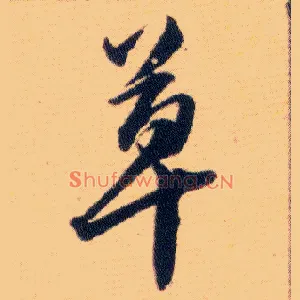 草
Shufawang.CN